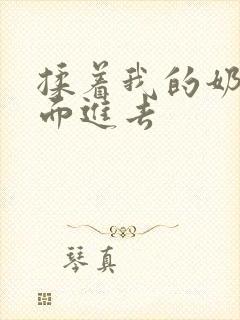 揉着我的奶
而進去
琴真